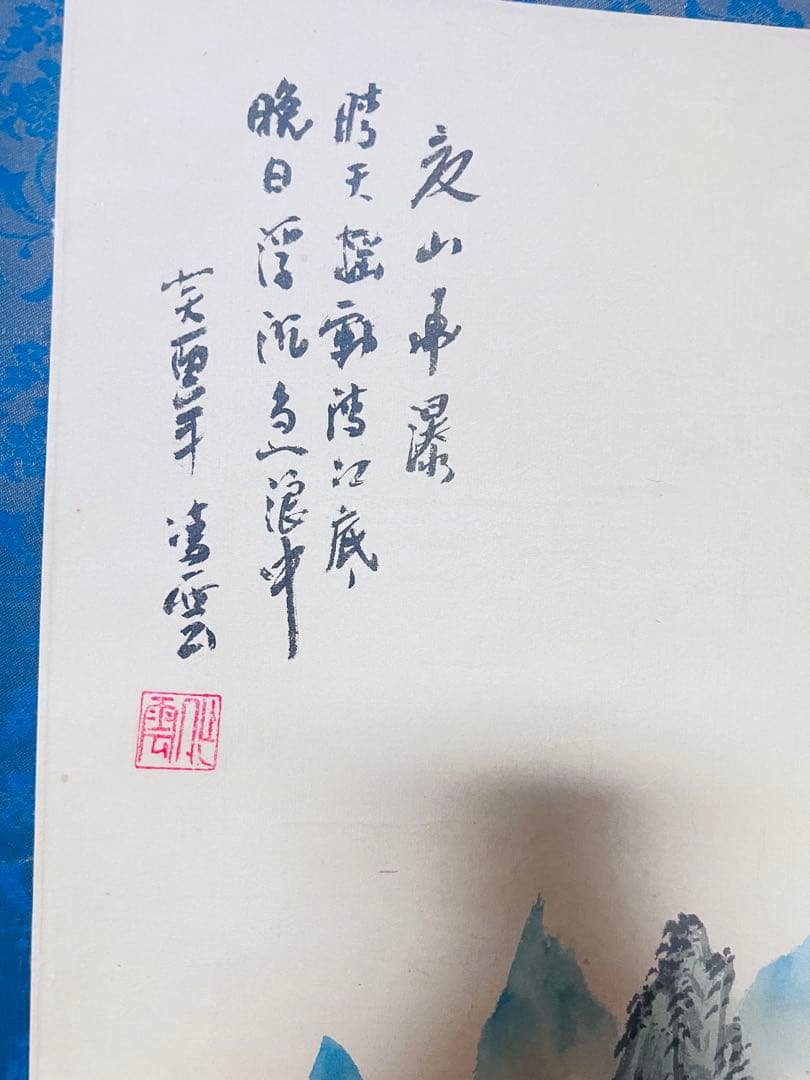 夏山飛瀑
晴天搖動清江底
晚日浮沉急浪中
癸酉年 凌雲